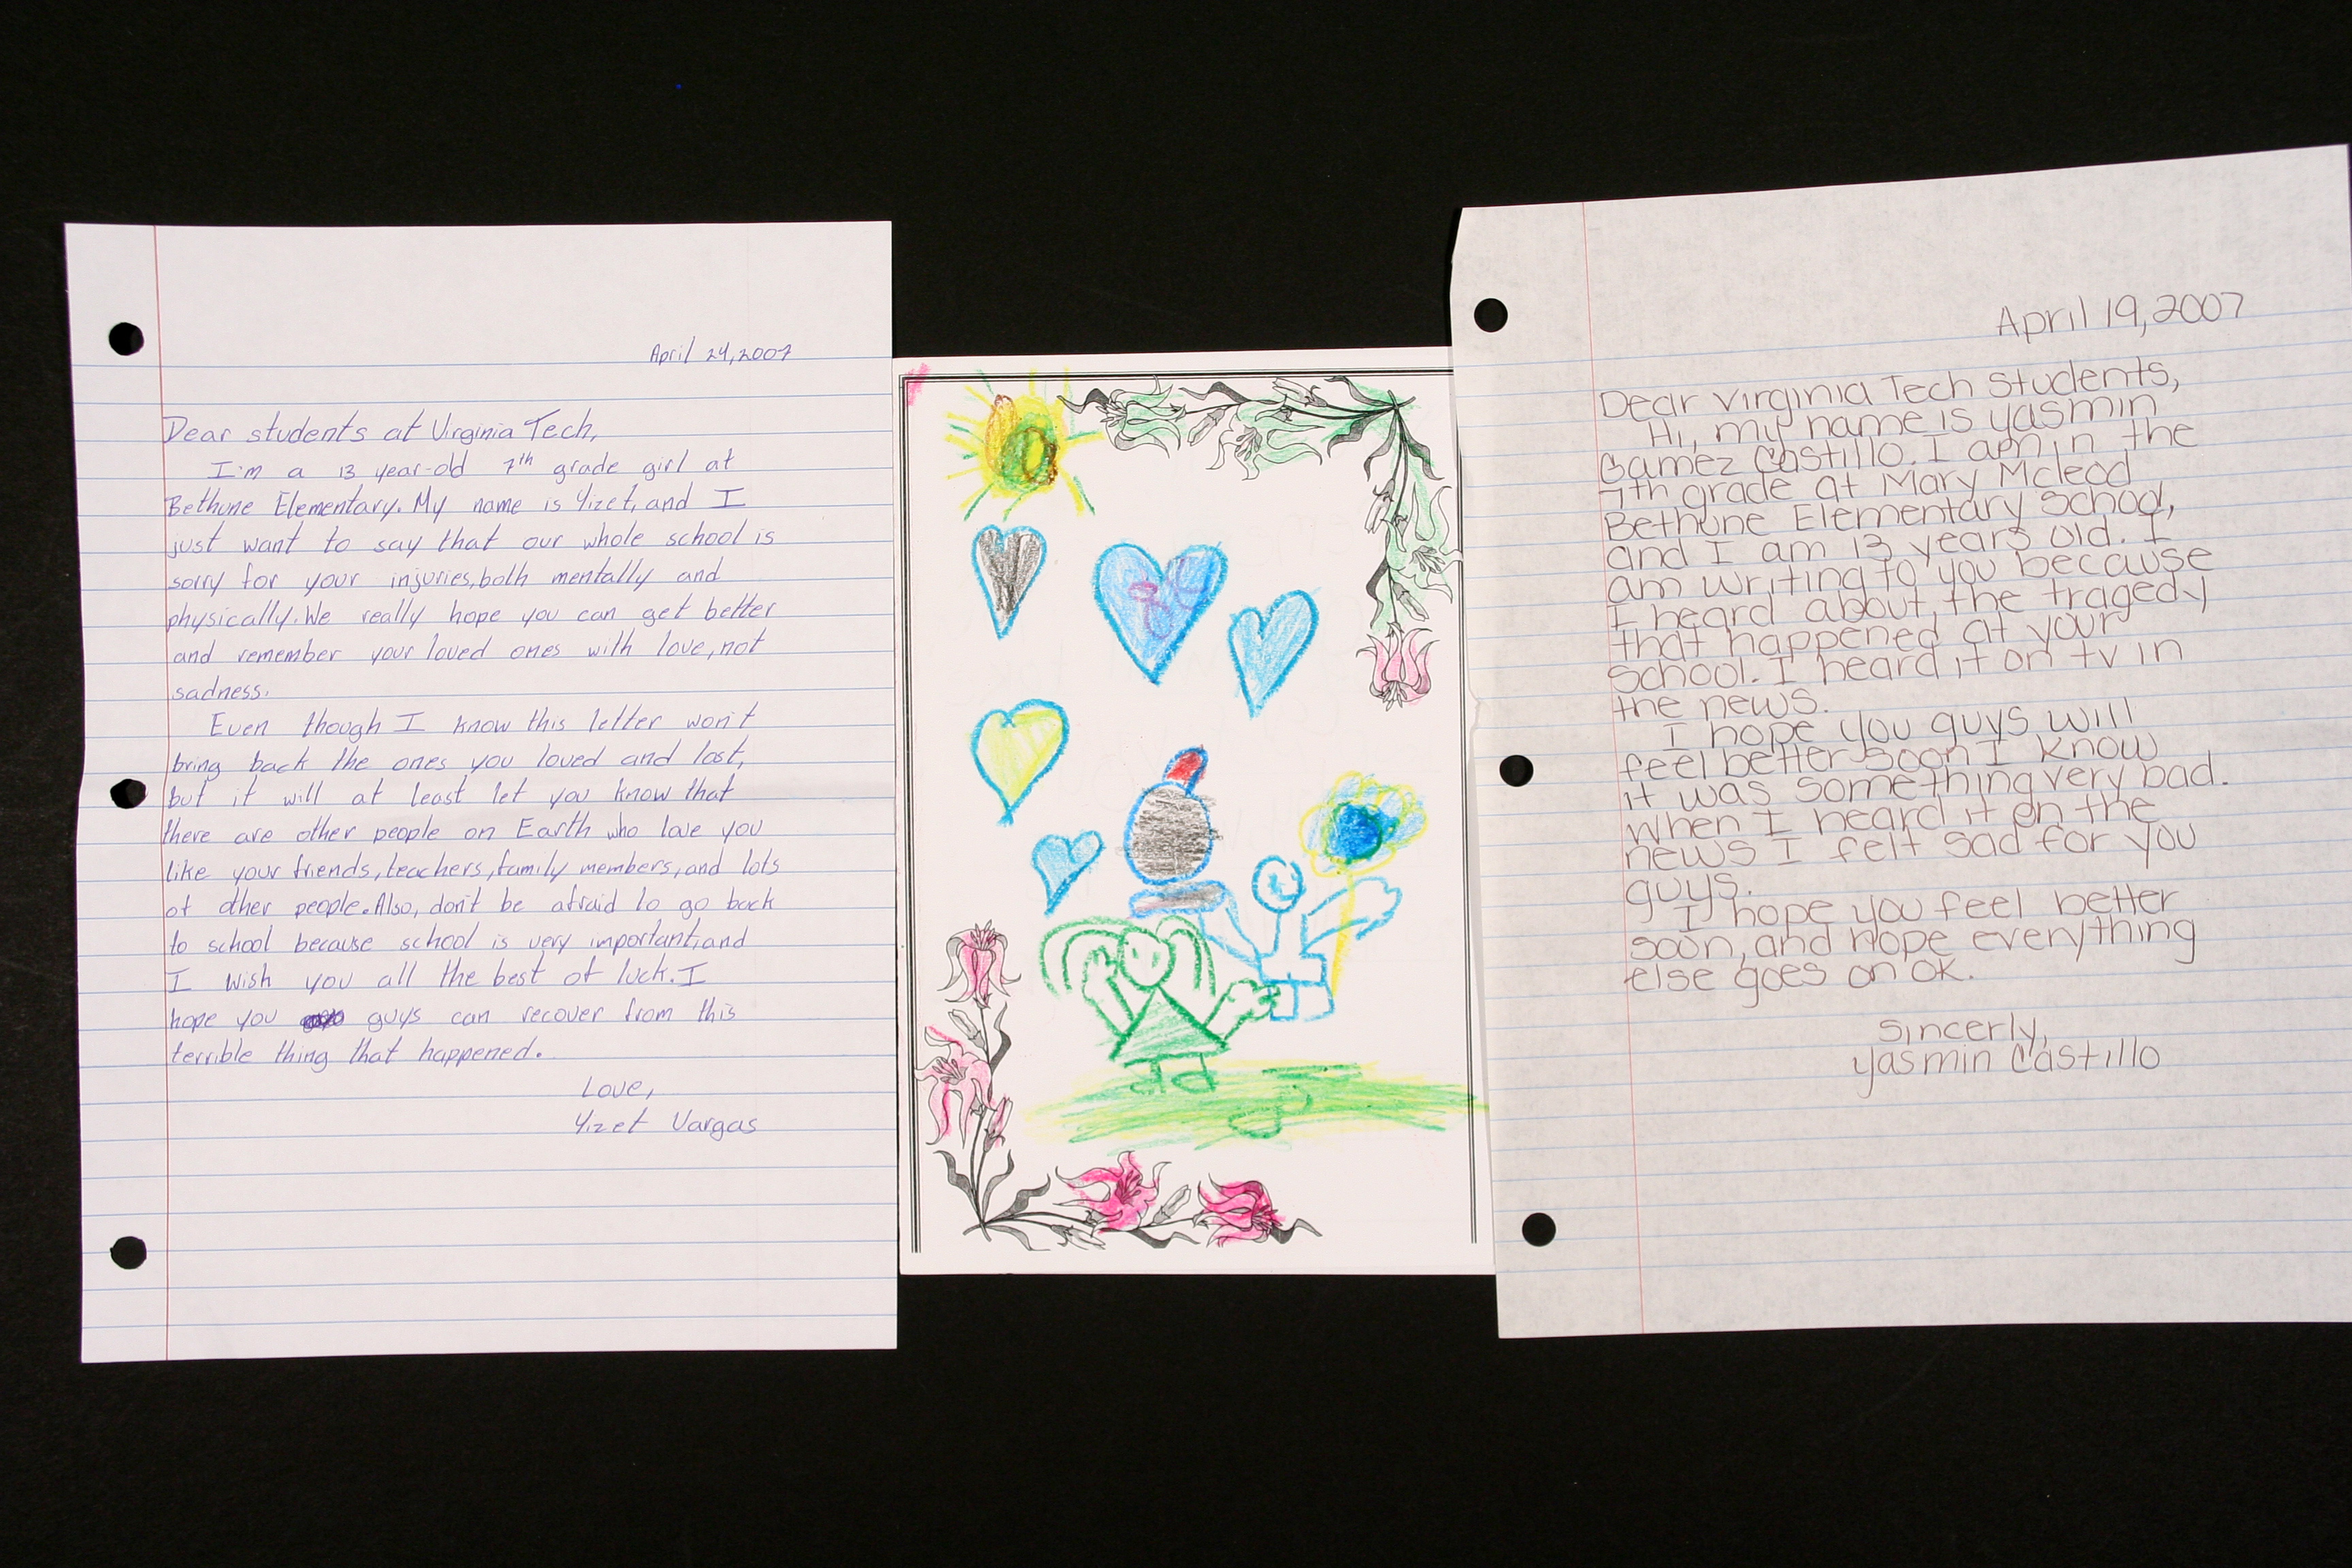 April 24, 2007
Dear students at Virginia Tech,
I'm a 13 year-old 7th grade girl at
Bethune Elementary. My name is Yizet, and I
just want to say that our whole school is
sorry for your injuries, both mentally and
physically. We really hope you can get better
and remember your loved ones with love, not
sadness.
Even though I know this letter won't
bring back the ones you loved and lost,
but it will at least let you know that
there are other people on Earth who love you
like your friends, teachers, family members, and lots
of other people. Also, don't be afraid to go back
to school because school is very important, and
I wish you all the best of luck. I
hope you guys can recover from this
terrible thing that happened.
Love,
Yizet Vargas
April 19, 2007
Dear Virginia Tech Students,
Hi, my name is Yasmin
Gamez Castillo. I am in the
7th grade at Mary Mcleod
Bethune Elementary School,
and I am 13 years old. I
am writing to you because
I heard about, the tragedy
that happened at your
school. I heard it on tv in
the news.
I hope you guys will
feel better soon I know
it was something very bad.
When I heard it on the
news I felt sad for you
guys.
I hope you feel better
soon, and hope everything
else goes on ok.
Sincerly,
Yasmin Castillo